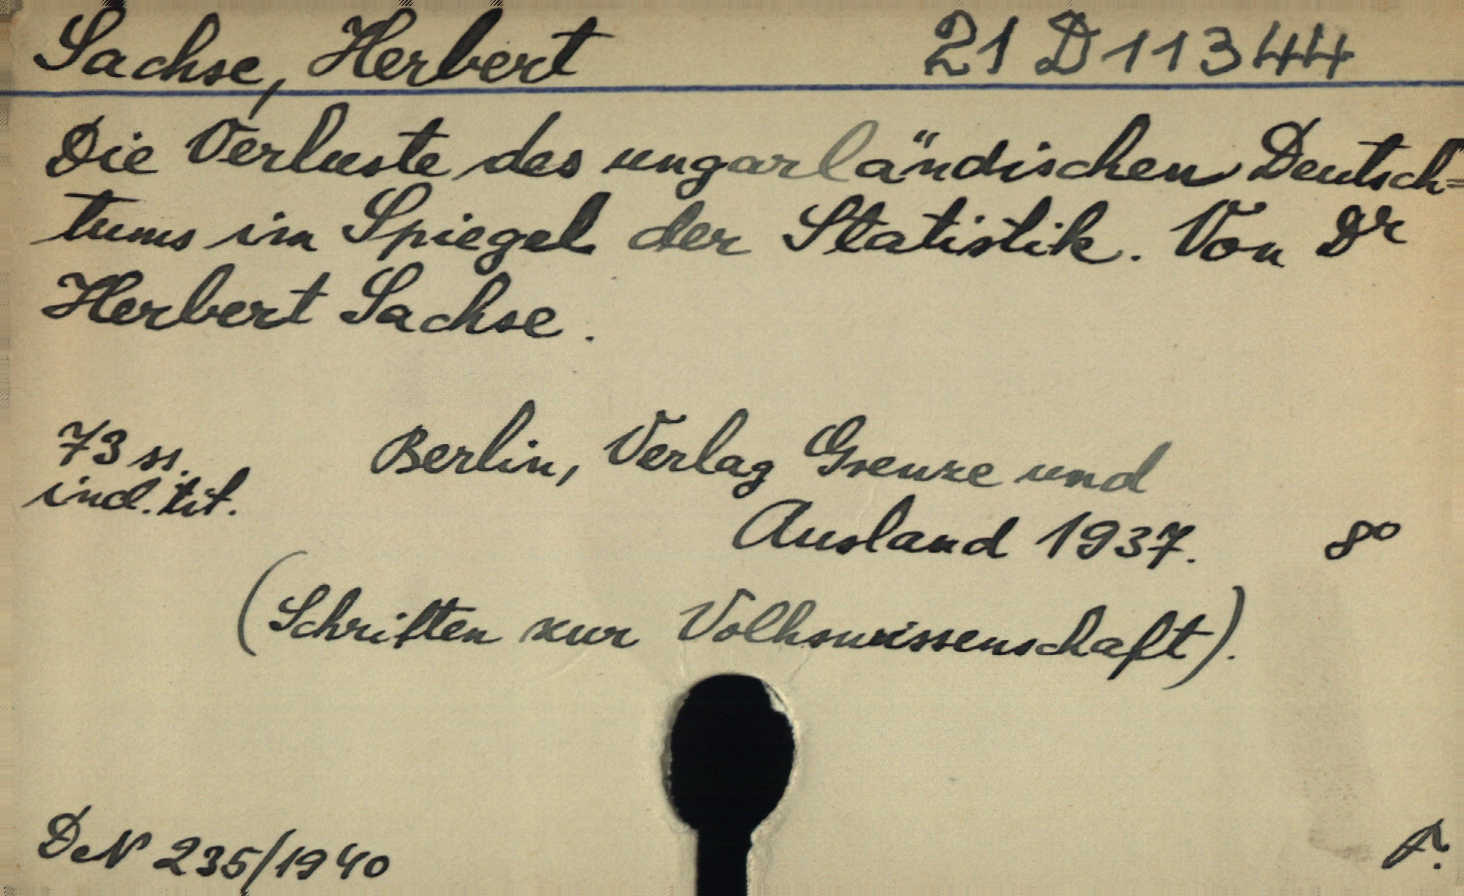 Sachse, Herbert 21 D 11344
Die Verluste des ungarländischen Deutsch=
tums im Spiegel der Statistik. Von Dr
Herbert Sachse.
73 ss. Berlin, Verlag Grenze und
incl. tit. Ausland 1937. 8°
(Schriften zur Volkswissenschaft).
DeN 235/1940